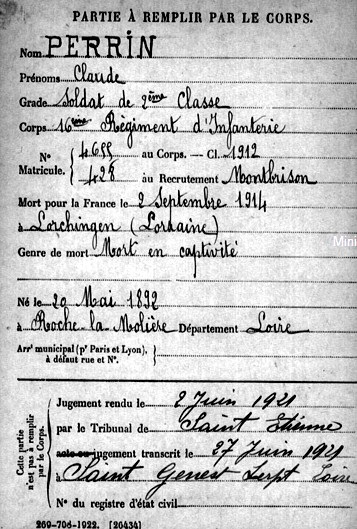 PARTIE À REMPLIR PAR LE CORPS.
Nom PERRIN
Prénoms Claude
Grade Soldat de 2ème Classe
Corps 16ème Régiment d'Infanterie
N° Matricule. { 4655 au Corps. — Cl. 1912
428 au Recrutement Montbrison
Mort pour la France le 2 Septembre 1914
à Lorchingen (Lorraine)
Mini
Genre de mort Mort en captivité
Né le 20 Mai 1892
à Roche la Molière Département Loire
Arrt municipal (pr Paris et Lyon),
à défaut rue et N°.
Cette partie n'est pas à remplir par le Corps.
Jugement rendu le 2 Juin 1921
par le Tribunal de Saint Etienne
acte ou jugement transcrit le 27 Juin 1921
à Saint Genest Lerpt Loire
N° du registre d'état civil
269-706-1922. [26434]